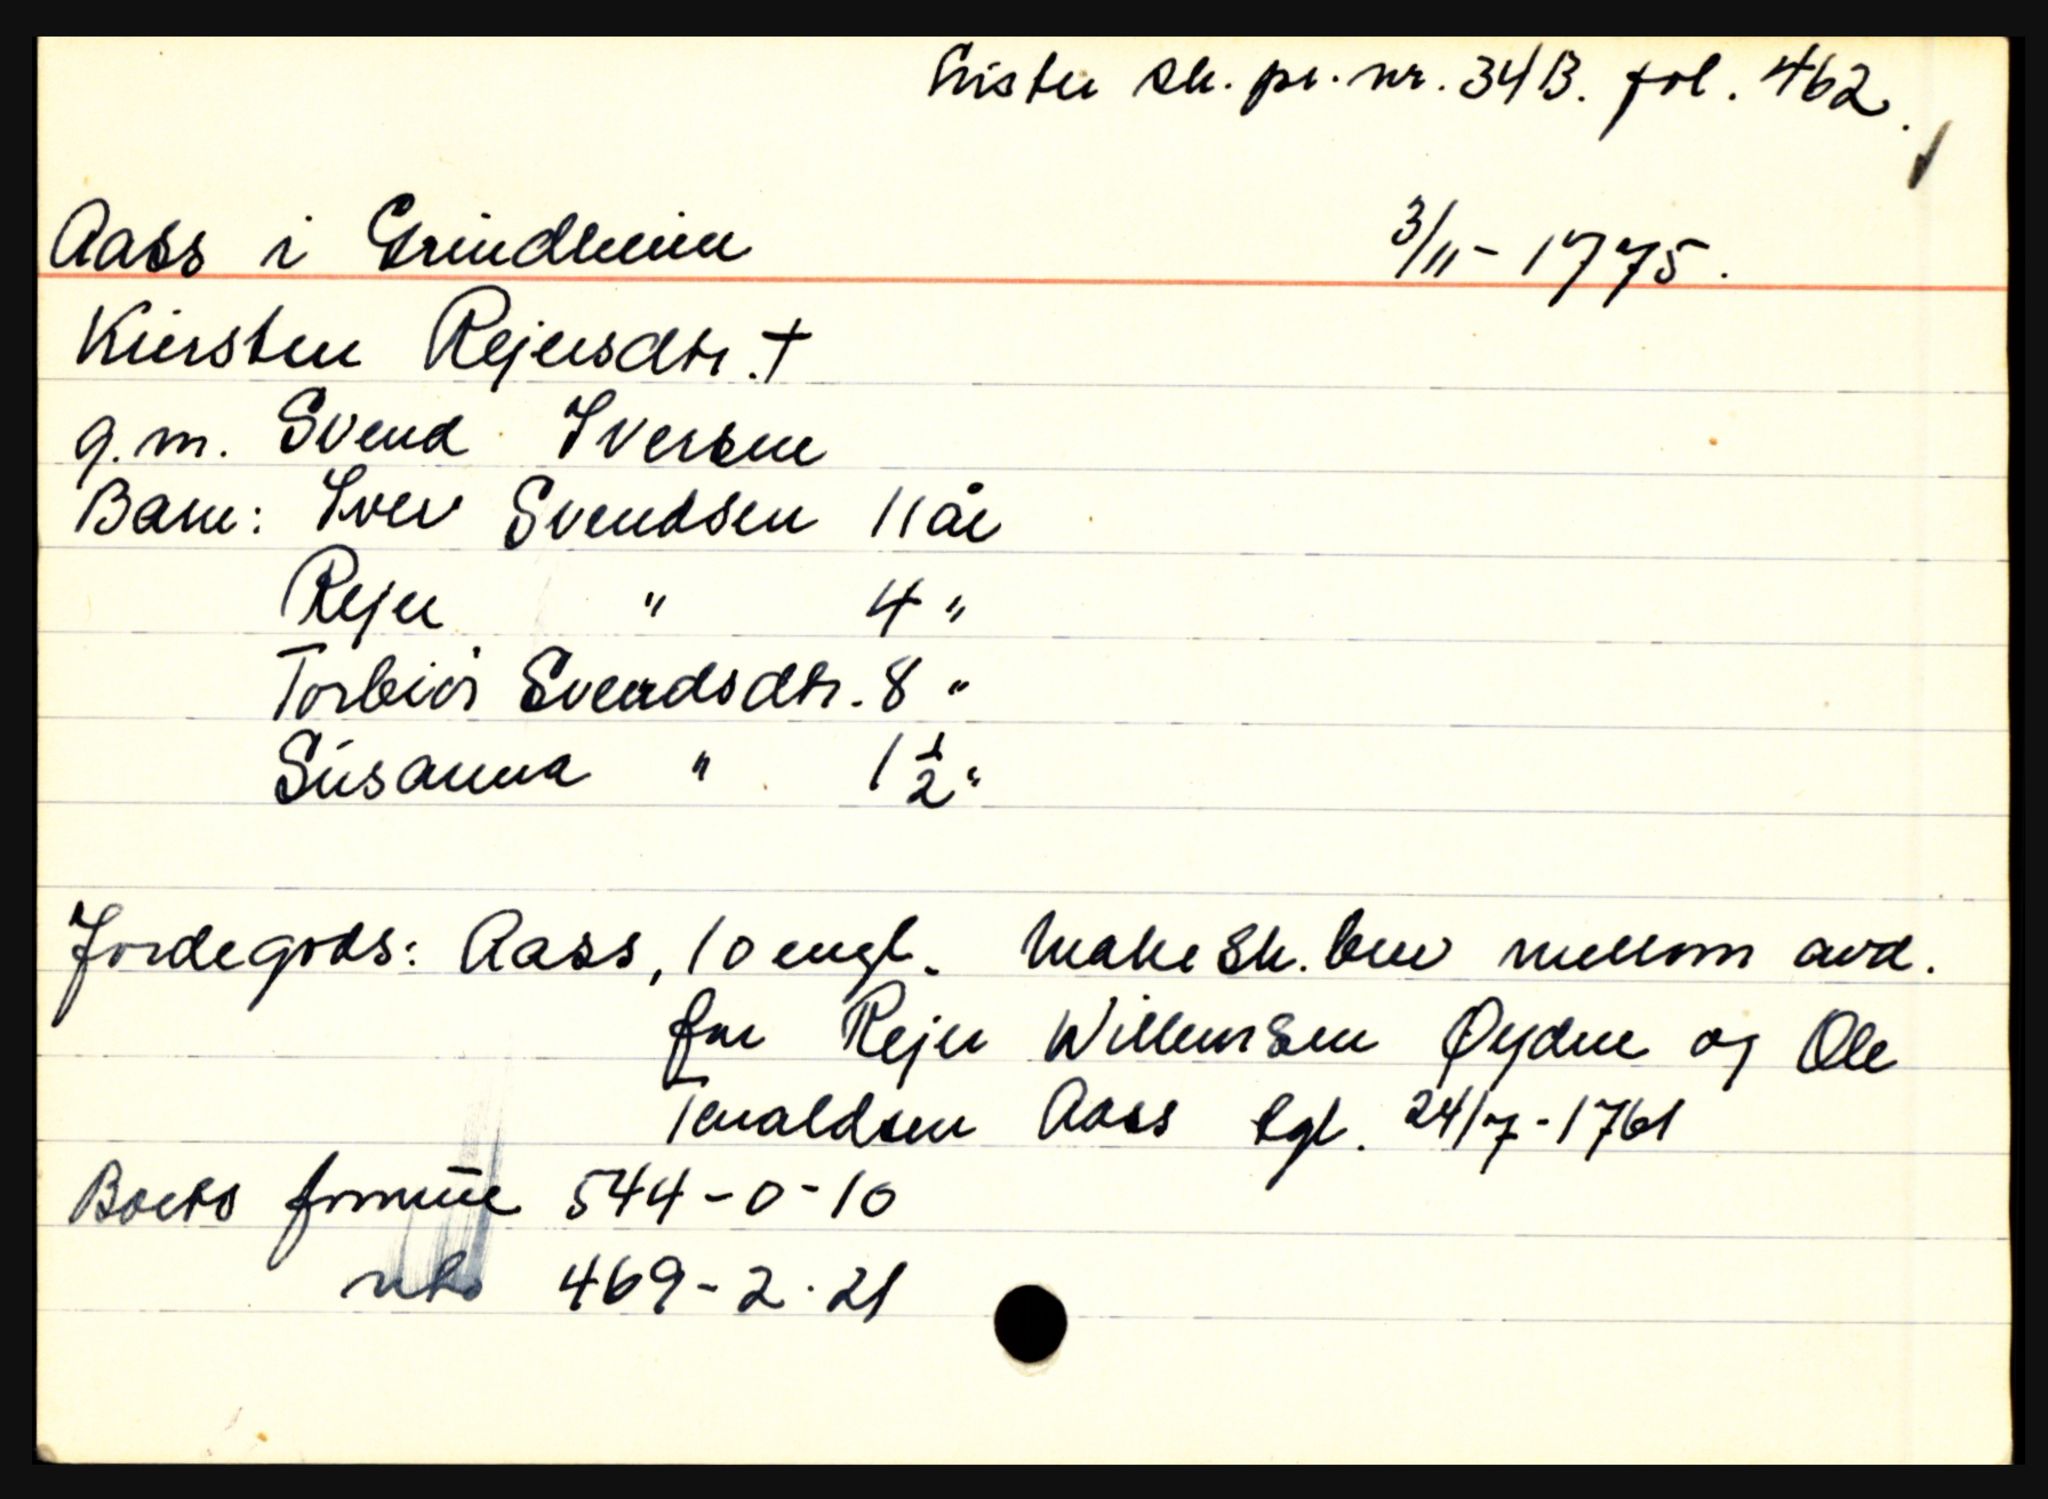 Lister sk. pr. nr. 34B. fol. 462.
Aass i Grindheim 3/11-1775.
Kiersten Rejersdtr. †
g.m. Svend Iversen
Barn: Iver Svendsen 11 år
Rejer " 4 "
Torbiør Svendsdtr. 8 "
Susanna " 1 1/2 "
Jordegods: Aass, 10 engl. Makesk. brev mellom avd.
far Rejer Willumsen Øydne og Ole
Teraldsen Aass tgl. 24/7-1761
Boets formue 544-0-10
nto 469-2-21